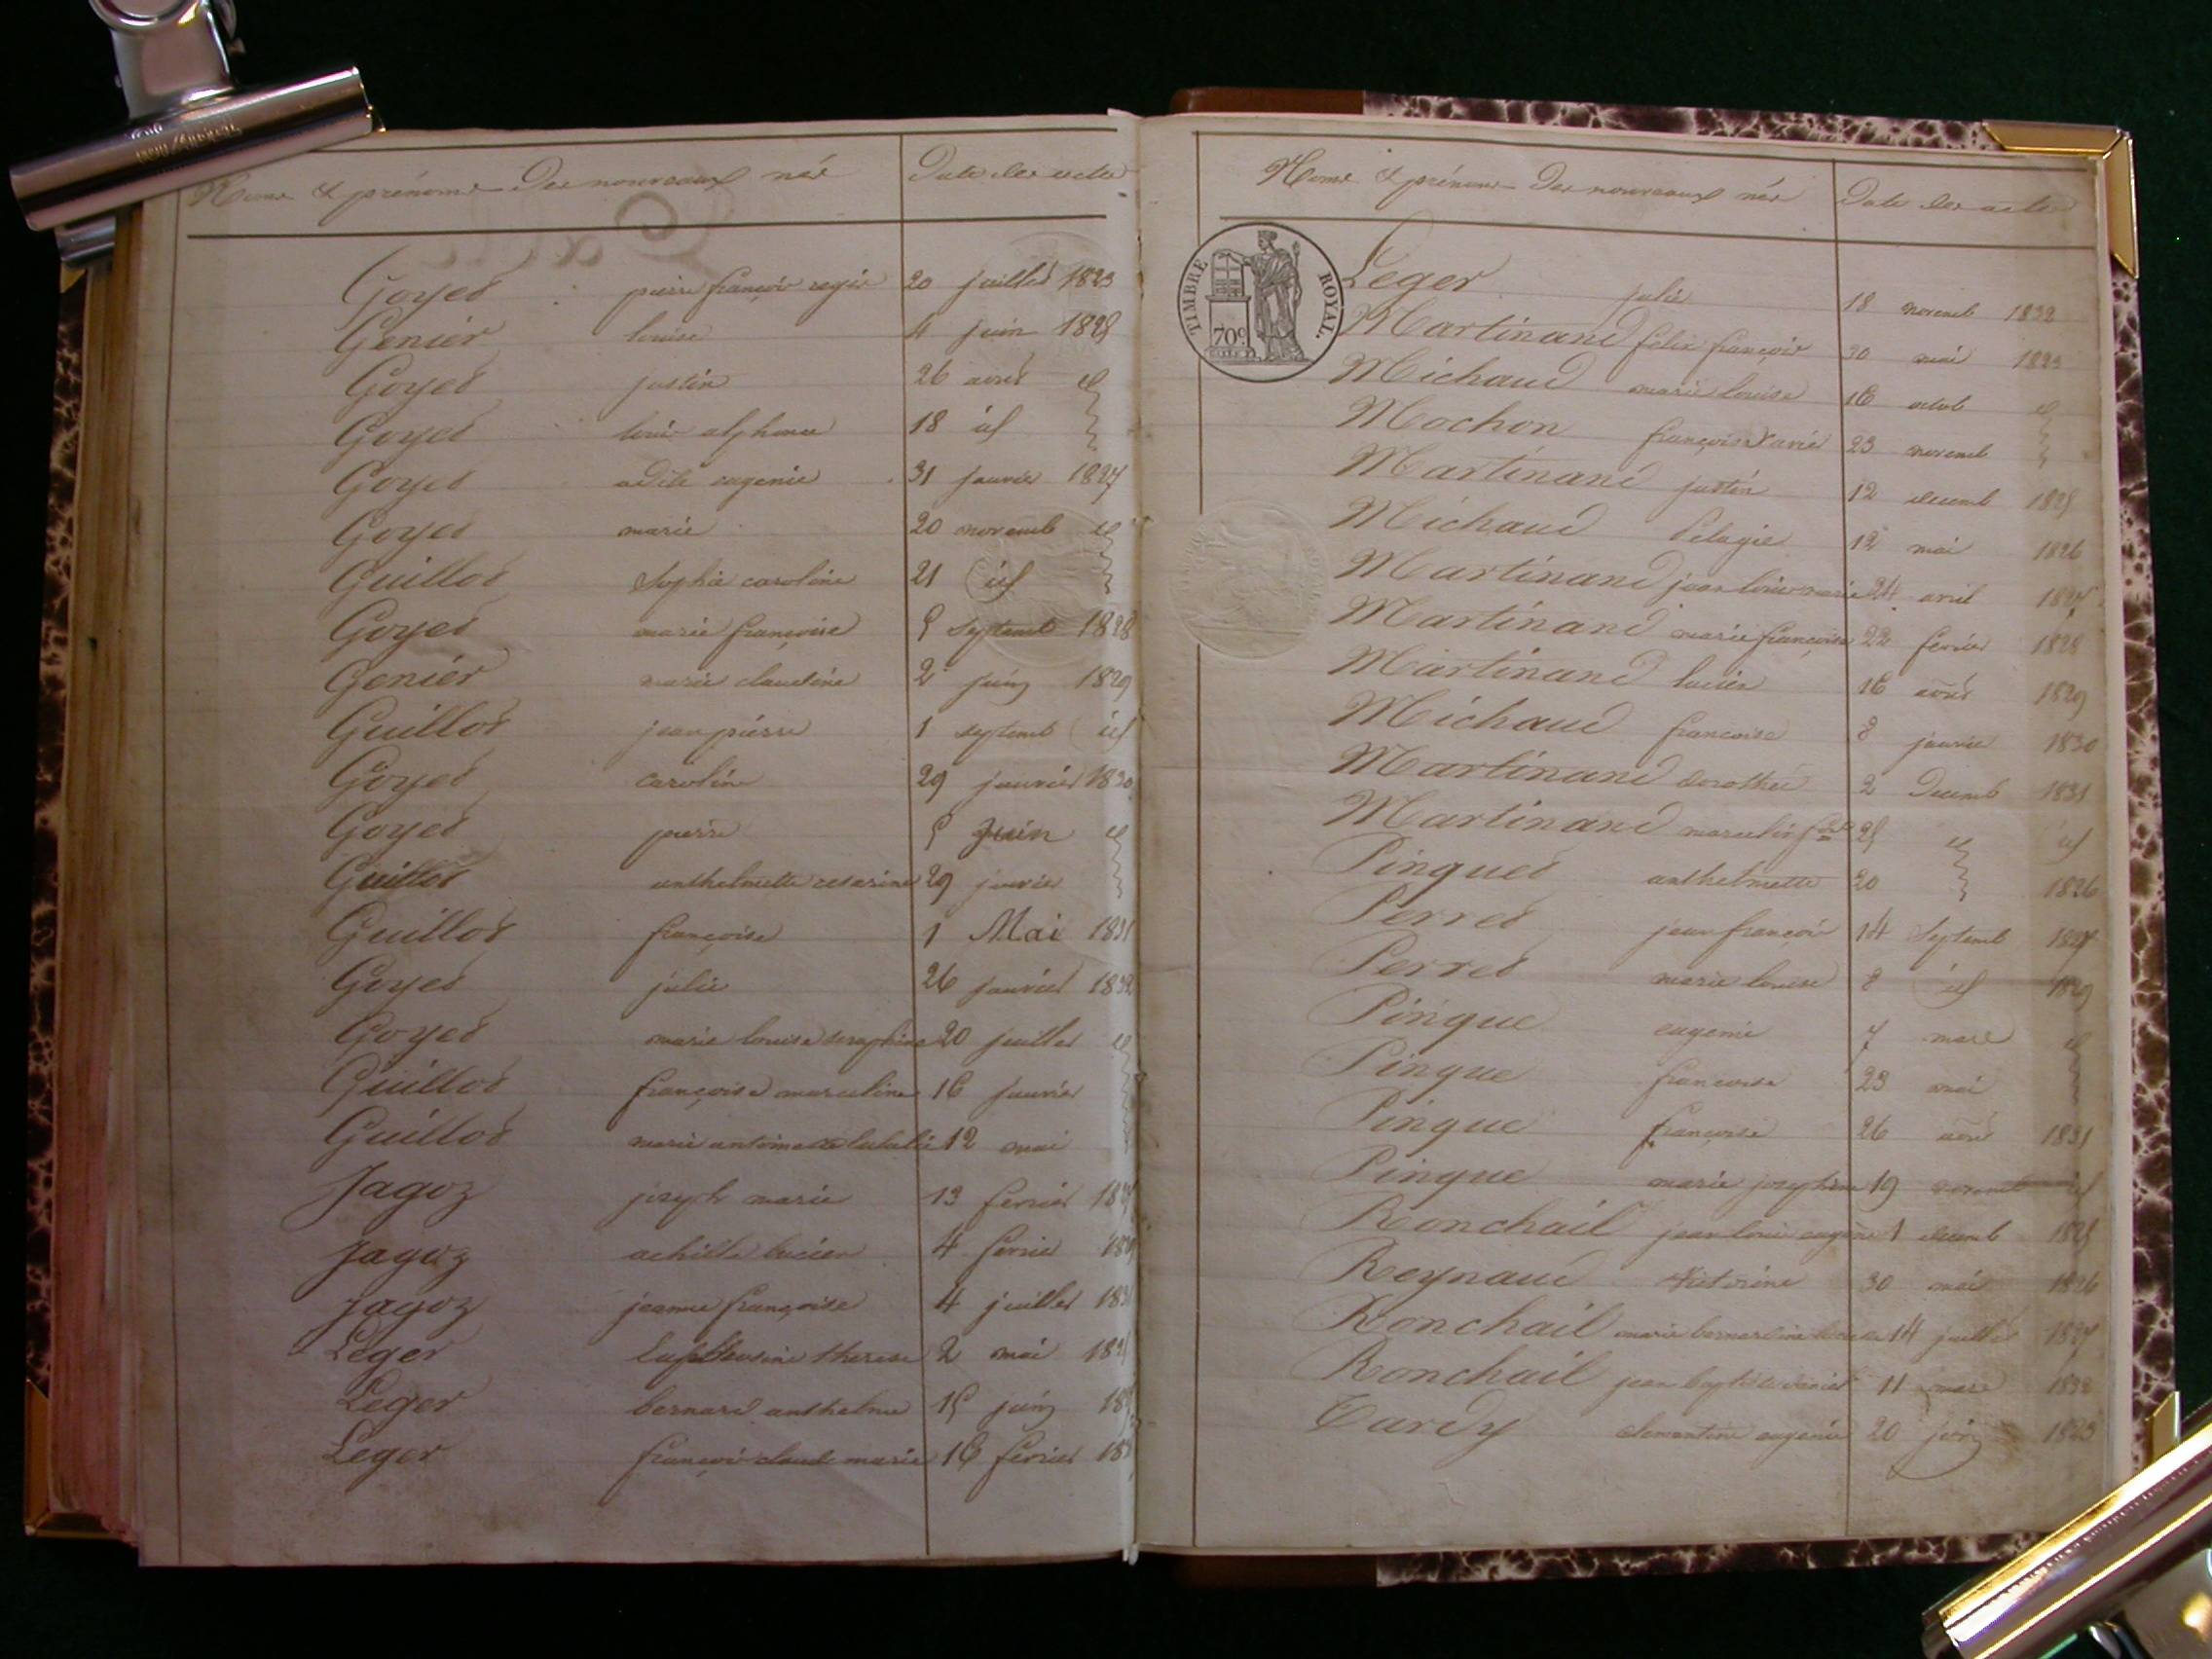 Noms et prénoms des nouveaux nés Date des actes
Goyet pierre françois regis 20 juillet 1823
Genier louise 4 juin 1825
Goyet justin 26 aout id
Goyet louis alphonse 18 id
Goyet adèle eugenie 31 janvier 1827
Goyet marie 20 novemb id
Guillot Sophie caroline 21 id
Goyet marie françoise 5 Septemb 1828
Genier marie claudine 2 juin 1829
Guillot jean pierre 1 septemb id
Goyet caroline 29 janvier 1830
Goyet pierre 5 Juin id
Guillot anthelmette cesarine 29 janvier
Guillot françoise 1 Mai 1831
Goyet julie 26 janvier 1832
Goyet marie louise seraphine 20 juillet id
Guillot françoise marceline 16 janvier
Guillot marie antoinette 12 mai
Jagoz joseph marie 13 fevrier
Jagoz achille lucien 4 fevrier
Jagoz jeanne françoise 4 juillet
Leger therese 2 mai
Leger bernard anthelme 15 juin
Leger françois claude marie 16 fevrier
Noms et prénoms des nouveaux nés Date des actes
TIMBRE ROYAL
70c
Leger julie 18 novemb 1832
Martinand felix françois 30 mai 1823
Michaud marie louise 16 octob id
Mochon françoise 23 novemb
Martinand justin 12 decemb 1825
Michaud Pelagie 12 mai 1826
Martinand jean louis marie 24 avril 1827
Martinand marie françoise 22 fevrier 1828
Martinand lucien 16 aout 1829
Michaud francoise 8 janvier 1830
Martinand dorothée 2 Decemb 1831
Martinand marcelin 25 id id
Pinguet anthelmette 20 1826
Perret jean françois 14 Septemb 1827
Perret marie louise 8 id 1829
Pingue eugenie 7 mars id
Pingue francoise 23 mai
Pingue françoise 26 aout 1831
Pingue marie josephine 19 novemb id
Ronchail jean louis eugene 1 decemb 1825
Reynaud Victorine 30 mai 1826
Ronchail marie bernardine 14 juillet 1827
Ronchail jean baptiste 11 mars 1832
Tardy clementine eugenie 20 juin 1823